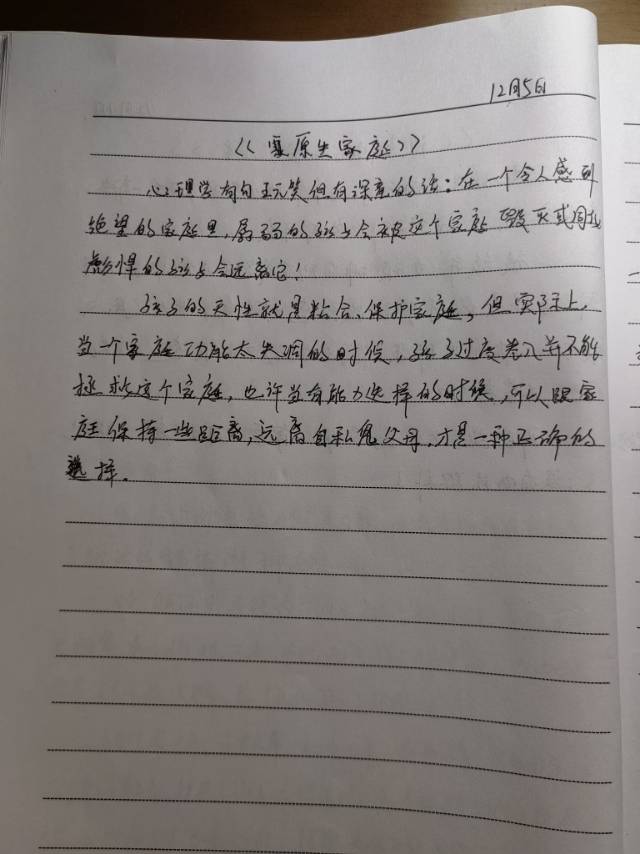 12月5日
《《原生家庭》》
心理学有句玩笑但有深意的话：在一个令人感到
绝望的家庭里，孱弱的孩子会被这个家庭毁灭或同化
彪悍的孩子会远离它！
孩子的天性就是粘合、保护家庭，但实际上，
当一个家庭功能太失调的时候，孩子过度卷入并不能
拯救这个家庭，也许当有能力选择的时候，可以跟家
庭保持一些距离，远离自私鬼父母，才是一种正确的
选择。